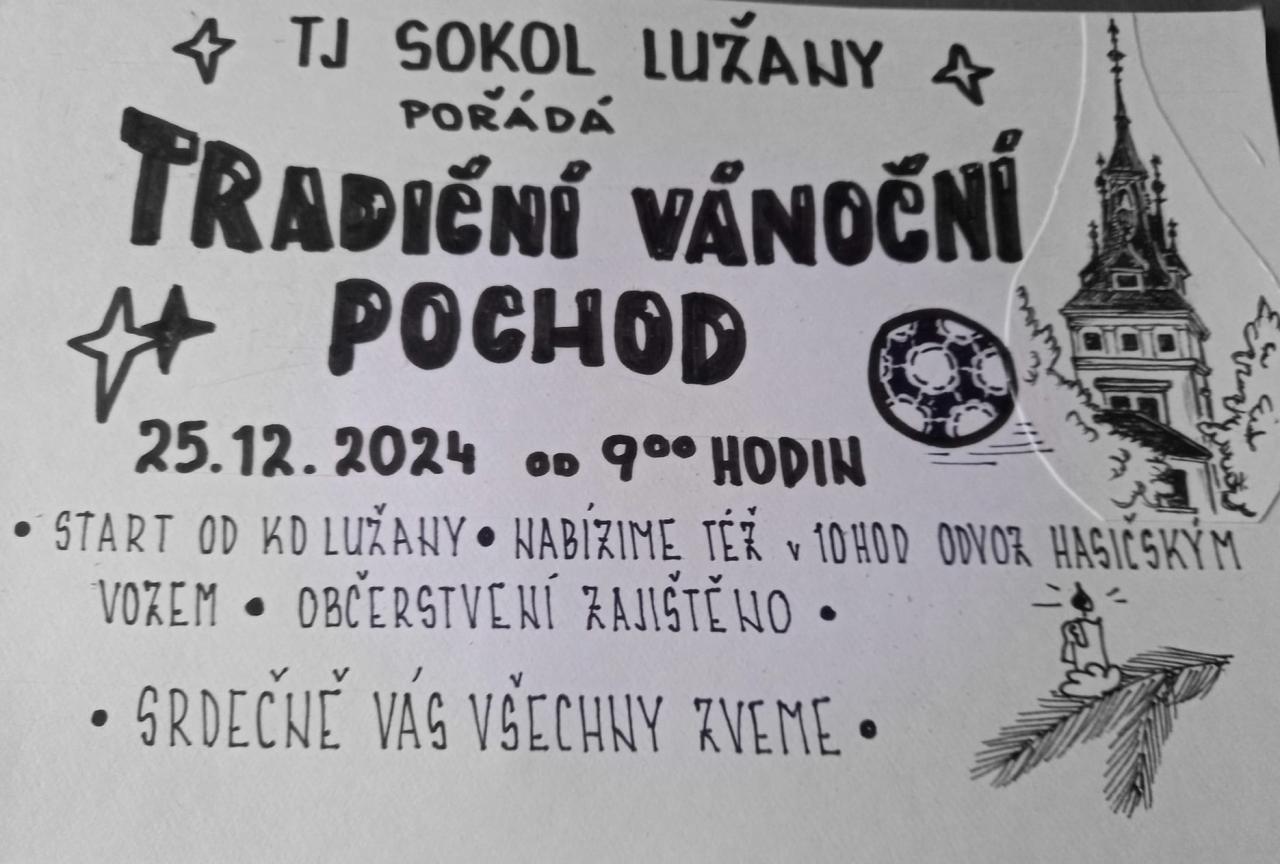 TJ SOKOL LUŽANY
POŘÁDÁ
TRADIČNÍ VÁNOČNÍ
POCHOD
25.12.2024 OD 9⁰⁰ HODIN
• START OD KD LUŽANY • NABÍZIME TÉŽ v 10HOD ODVOZ HASIČSKÝM
VOZEM • OBČERSTVENÍ ZAJIŠTĚNO •
• SRDEČNĚ VÁS VŠECHNY ZVEME •